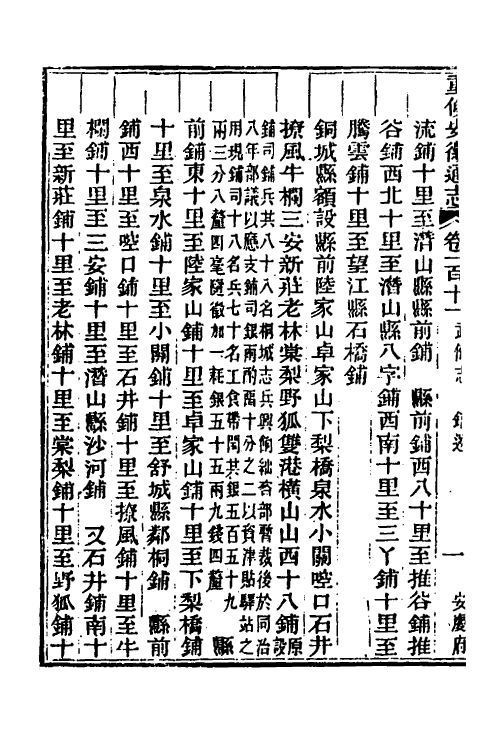 重修安徽通志 卷一百十一 武備志 舖遞 一 安慶府
流鋪十里至潛山縣縣前鋪 縣前鋪西八十里至推谷鋪推
谷鋪西北十里至潛山縣八字鋪西南十里至三丫鋪十里至
騰雲鋪十里至望江縣石橋鋪
銅城縣額設縣前陸家山卓家山下梨橋泉水小關崆口石井
撩風牛欄三安新莊老林棠梨野狐雙港橫山山西十八鋪原設
鋪司鋪兵共八十八名桐城志兵興餉絀咨部暫裁後於同治
八年部議以應支鋪司銀兩酌酉十分之二以資津貼驛站之
用現鋪司十八名兵七十名工食帶閏共銀五百五十九
兩三分八釐四毫隨徵加一耗銀五十五兩九錢四釐 縣
前鋪東十里至陸家山鋪十里至卓家山鋪十里至下梨橋鋪
十里至泉水鋪十里至小關鋪十里至舒城縣鄰桐鋪 縣前
鋪西十里至崆口鋪十里至石井鋪十里至撩風鋪十里至牛
欄鋪十里至三安鋪十里至潛山縣沙河鋪 又石井鋪南十
里至新莊鋪十里至老林鋪十里至棠梨鋪十里至野狐鋪十